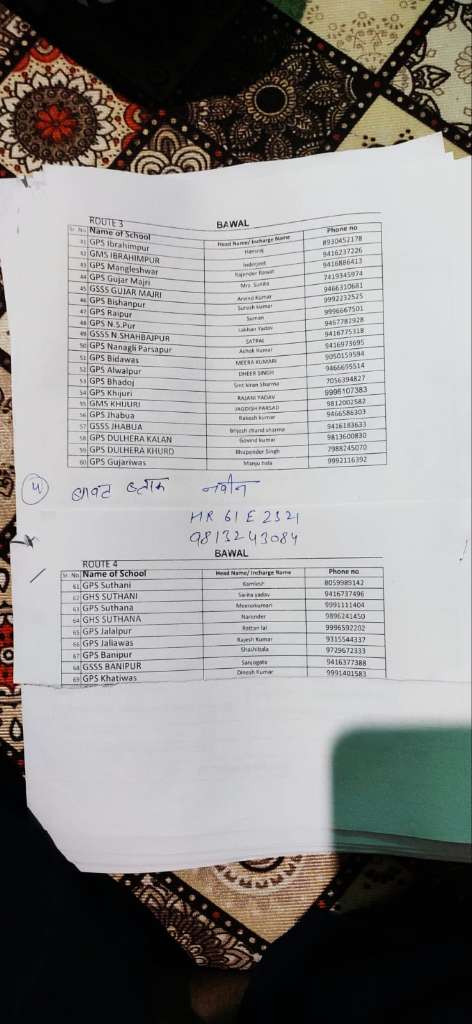 ROUTE 3 BAWAL
Sr. No. Name of School Head Name/ Incharge Name Phone no
41 GPS Ibrahimpur Hemraj 8930452178
42 GMS IBRAHIMPUR Inderjeet 9416237226
43 GPS Mangleshwar Rajender Rawat 9416886413
44 GPS Gujar Majri Mrs. Sunita 7419345974
45 GSSS GUJAR MAJRI Arvind Kumar 9466310681
46 GPS Bishanpur Suresh kumar 9992232525
47 GPS Raipur Suman 9996667501
48 GPS N.S.Pur Lakhan Yadav 9467782928
49 GSSS N.SHAHBAJPUR SATPAL 9416775318
50 GPS Nanagli Parsapur Ashok Kumar 9416973695
51 GPS Bidawas MEERA KUMARI 9050159594
52 GPS Alwalpur DHEER SINGH 9466695514
53 GPS Bhadoj Smt kiran sharma 7056394827
54 GPS Khijuri RAJANI YADAV 9996107383
55 GMS KHIJURI JAGDISH PARSAD 9812002582
56 GPS Jhabua Rakesh kumar 9466586303
57 GSSS JHABUA Brijesh chand sharma 9416183633
58 GPS DULHERA KALAN Govind kumar 9813600830
59 GPS DULHERA KHURD Bhupender Singh 7988245070
60 GPS Gujariwas Manju bala 9992116392
4 बावल ब्लाक नवीन
HR 61 E 2321
9813243084
BAWAL
ROUTE 4
Sr. No. Name of School Head Name/ Incharge Name Phone no
61 GPS Suthani Kamlesh 8059989142
62 GHS SUTHANI Sarita yadav 9416737496
63 GPS Suthana Meenakumari 9991111404
64 GHS SUTHANA Narender 9896241450
65 GPS Jalalpur Rattan lal 9996592202
66 GPS Jaliawas Rajesh Kumar 9315544337
67 GPS Banipur Shashibala 9729672333
68 GSSS BANIPUR Saroj 9416377388
69 GPS Khatiwas Dinesh Kumar 9991401583